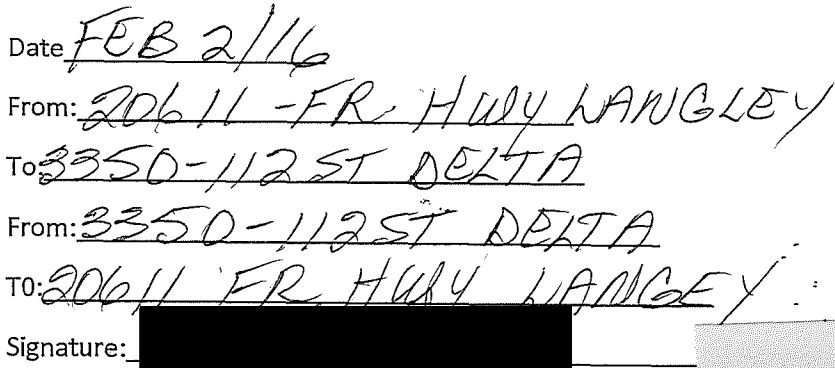 Date FEB 2/16
From: 20611 - FR. HWY LANGLEY
To: 3350-112 ST DELTA
From: 3350-112 ST DELTA
T0: 20611 FR HWY LANGEY
Signature: